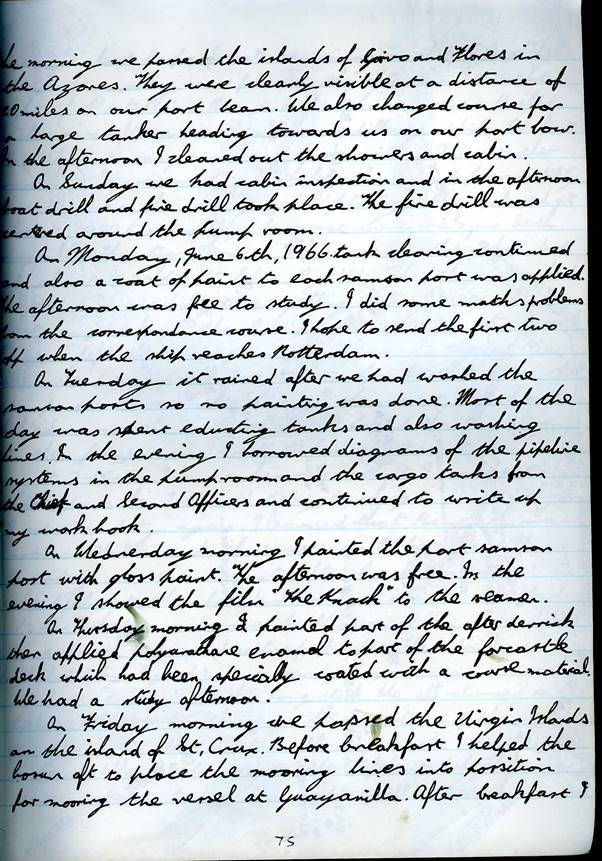 he morning we passed the islands of Corvo and Flores in
the Azores. They were clearly visible at a distance of
20 miles on our port beam. We also changed course for
a large tanker heading towards us on our port bow.
In the afternoon I cleaned out the showers and cabin.
On Sunday we had cabin inspection and in the afternoon
boat drill and fire drill took place. The fire drill was
centred around the pump room.
On Monday, June 6th, 1966. tank cleaning continued
and also a coat of paint to each samson post was applied.
The afternoon was free to study. I did some maths problems
from the correspondance course. I hope to send the first two
off when the ship reaches Rotterdam.
On Tuesday it rained after we had washed the
samson posts so no painting was done. Most of the
day was spent educting tanks and also washing
lines. In the evening I borrowed diagrams of the pipeline
systems in the pumproom and the cargo tanks from
the Chief and Second Officers and continued to write up
my work book.
On Wednesday morning I painted the port samson
post with gloss paint. The afternoon was free. In the
evening I showed the film "The Knack" to the seamen.
On Thursday morning I painted part of the after derrick
then applied polyurathane enamel to part of the forcastle
deck which had been specially coated with a course material.
We had a study afternoon.
On Friday morning we passed the Virgin Islands
on the island of St. Crux. Before breakfast I helped the
bosun aft to place the mooring lines into porsition
for mooring the vessel at Guayanilla. After breakfast I
75